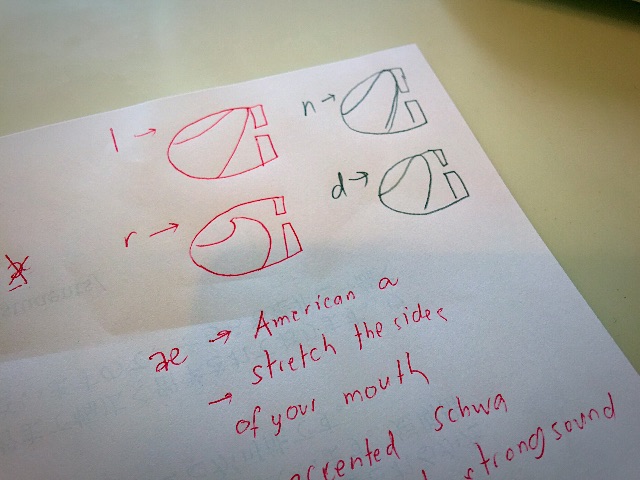 l →
n →
d →
r →
æ → American a
→ stretch the sides
of your mouth
schwa
strong sound